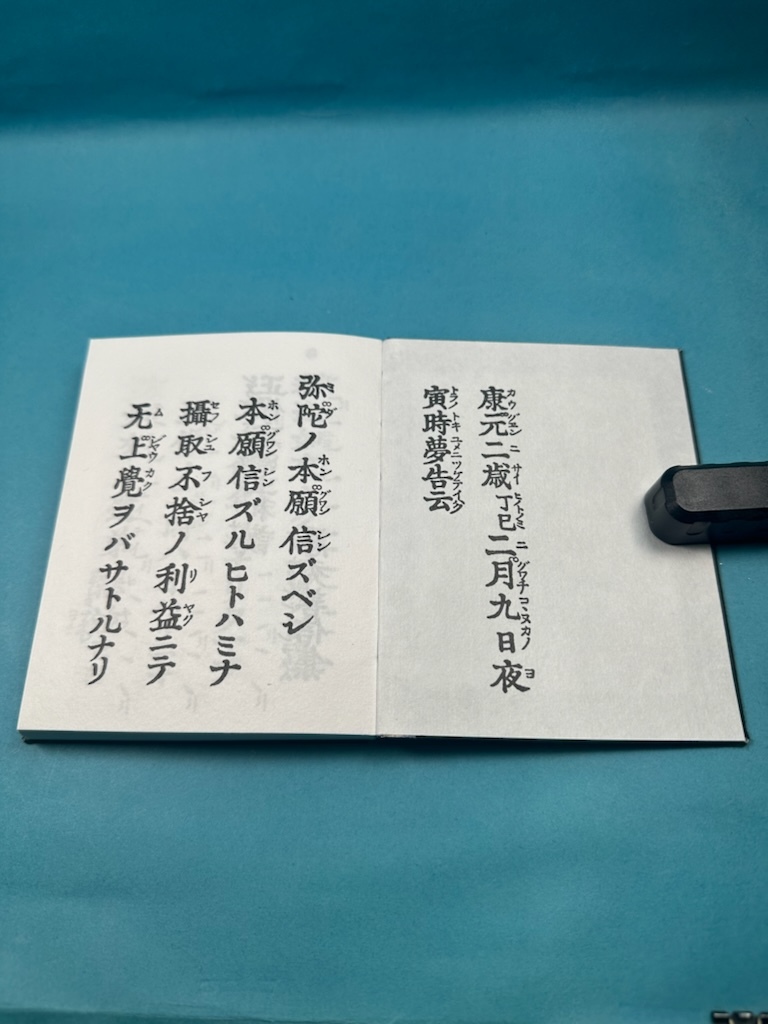 康元二歳丁巳二月九日夜
寅時夢告云
弥陀ノ本願信ズベシ
本願信ズルヒトハミナ
攝取不捨ノ利益ニテ
无上覺ヲバサトルナリ